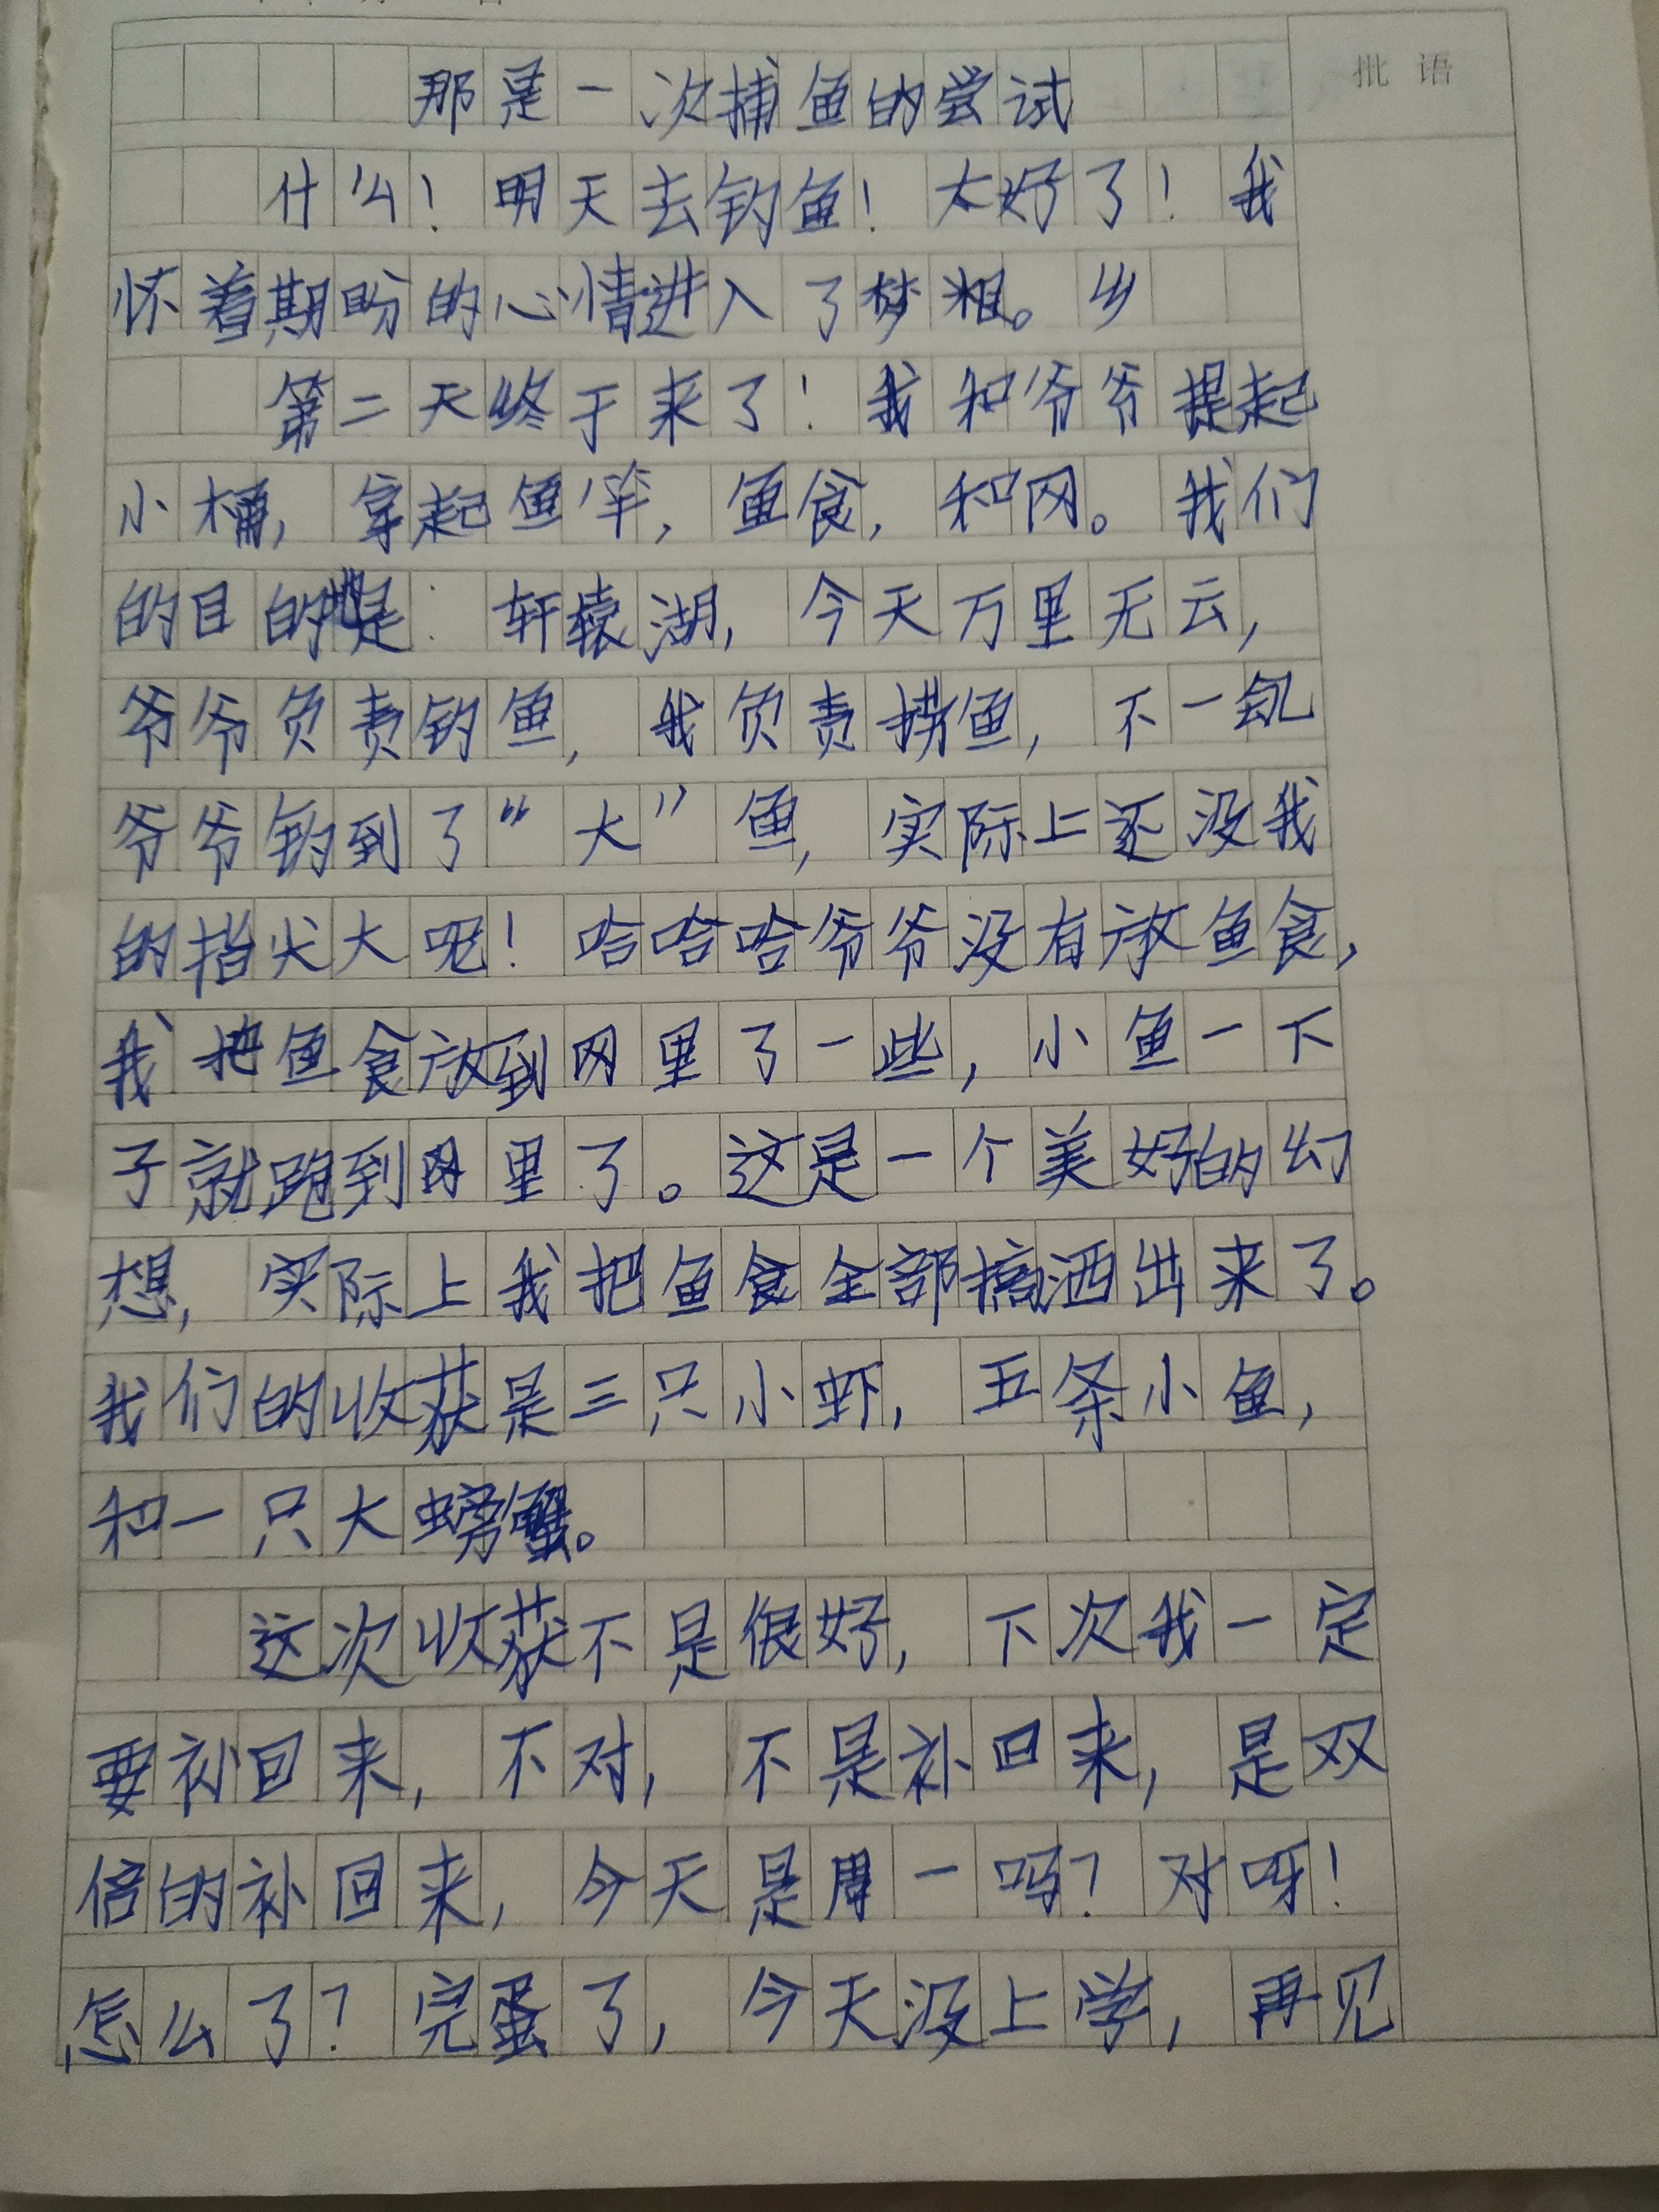 批语
那是一次捕鱼的尝试
什么！明天去钓鱼！太好了！我
怀着期盼的心情进入了梦相。乡
第二天终于来了！我和爷爷提起
小桶，拿起鱼竿，鱼食，和网。我们
的目的地是：轩辕湖，今天万里无云，
爷爷负责钓鱼，我负责捞鱼，不一
爷爷钓到了“大”鱼，实际上还没我
的指尖大呢！哈哈哈爷爷没有放鱼食，
我把鱼食放到网里了一些，小鱼一下
子就跑到网里了。这是一个美好的幻
想，实际上我把鱼食全部搞洒出来了。
我们的收获是三只小虾，五条小鱼，
和一只大螃蟹。
这次收获不是很好，下次我一定
要补回来，不对，不是补回来，是双
倍的补回来，今天是周一吗？对呀！
怎么了？完蛋了，今天没上学，再见